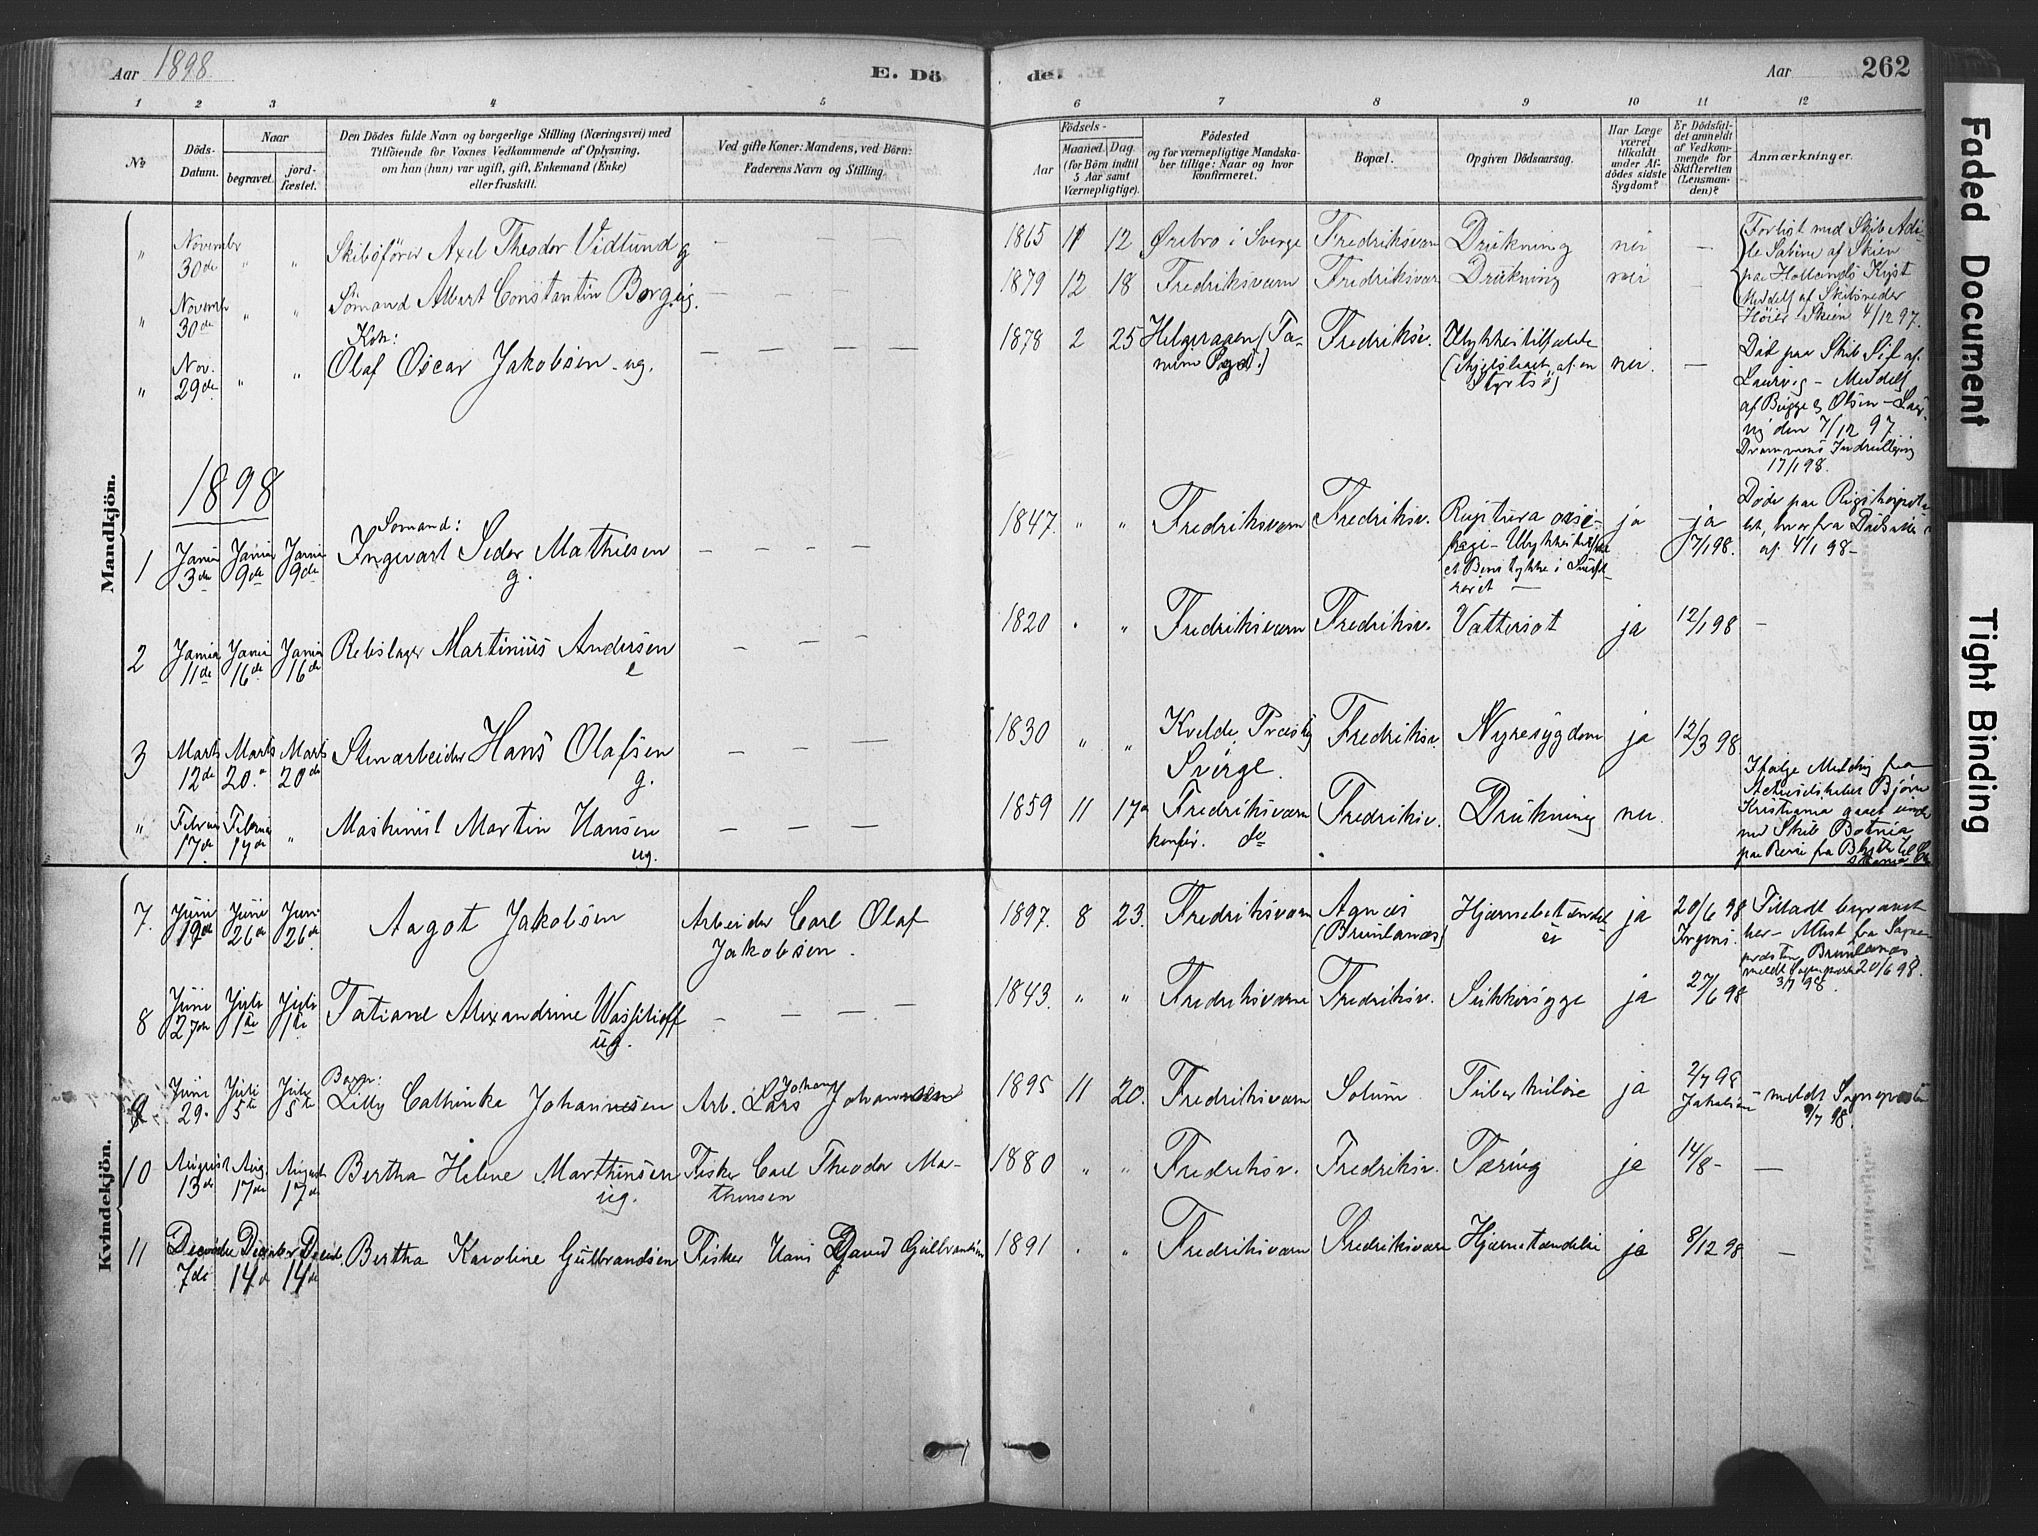 Aar 1898
E. Dö
de.
Aar
262
1 2 3 4 5 6 7 8 9 10 11 12
No
Döds-
Datum.
Naar
begravet.
jord-
fæstet.
Den Dödes fulde Navn og borgerlige Stilling (Næringsvei) med
Tilföiende for Voxnes Vedkommende af Oplysning,
om han (hun) var ugift, gift, Enkemand (Enke)
eller fraskilt.
Ved gifte Koner: Mandens, ved Börn:
Faderens Navn og Stilling.
Födsels-
Aar
Maaned. Dag
(for Börn indtil
5 Aar samt
Værnepligtige).
Födested
og for værnepligtige Mandska-
ber tillige: Naar og hvor
konfirmeret.
Bopæl.
Opgiven Dödsaarsag.
Har Læge
været
tilkaldt
under Af-
dödes sidste
Sygdom?
Er Dödsfal-
det anmeldt
af Vedkom-
mende for
Skifteretten
(Lensman-
den)?
Anmærkninger.
Mandkjön.
" November 30de " " Skibsfører Axel Theodor Vidlund g — — — 1865 11 12 Ørebro i Sverge Fredriksværn Drukning nei —
Forlist med Skib Ade-
le Sabine af Skien
paa Hollands Kyst
Meddelt af Skibsreder
Høier Skien 4/12 97.
" November 30de " " Sømand Albert Constantin Borg ug. — — — 1879 12 18 Fredriksværn Fredriksvær Drukning nei —
Kok:
" Nov. 29de " " Olaf Oscar Jakobsen - ug. — — — — 1878 2 25 Helgeraaen (Ta-
num Sogn) Fredriksv. Ulykkestilfælde
(ihjelslaaet af en
Styrtsø) nei. —
Død paa Skib Sif af
Laurvig - Meddelt
af Bugge & Olsen - Laur-
vig den 7/12 97
Drammens Indrullering
17/1 98.
1898
Sømand:
1 Januar 3de Januar 9de Januar 9de Ingevart Peder Mathiesen g. — — — — 1847. " " Fredriksværn Fredriksv. Ruptura
et Benstykke i
ja ja 7/1 98.
Døde paa Rigshospita-
let,
af 4/1 98 —
2 Januar 11de Januar 16de Januar 16de Rebslager Martinius Andersen e — — — 1820 " " Fredriksværn Fredriksv. Vattersot ja 12/1 98 —
3 Marts 12de Marts 20de Marts 20de Stenarbeider Hans Olafsen g. — — — 1830 " " Kvelde Præstg
Sverge. Fredriksv. Nyresygdom ja 12/3 98
" Februar 17de Februar 17de " Maskinist Martin Hansen ug. — — — 1859 11 17de Fredriksværn
konfir. do Fredriksv. Drukning nei
Ifølge Melding fra
Actieselskabet Bjørn
Kristiania gaaet under
med Skib Botnia
paa Reise fra
Kvindekjön.
7. Juni 19de Juni 26de Juni 26de Aagot Jakobsen Arbeider Carl Olaf
Jakobsen. 1897. 8 23. Fredriksværn Agnæs
(Brunlanæs) Hjernebetændel-
se ja 20/6 98
Tilladt begravet
her - Attest fra Sogne-
præsten, Brunlanæs
meldt Sognepræst 20/6 98.
3/7 98.
8 Juni 27de Juli 1ste Juli 1ste Tatiane Alexandrine Wassilioff ug. — — — 1843. " " Fredriksværn Fredriksv. Sukkersyge ja 27/6 98
Barn:
9 Juni 29. Juli 5te Juli 5te Lilly Cathinka Johannesen Arb. Lars Johan Johannesen 1895 11 20. Fredriksværn Solum Tuberkulose ja 2/7 98
meldt Sognepræsten
9/7 98.
10 August 13de Aug. 17de August 17de Bertha Helene Marthinsen ug. Fisker Carl Theodor Mar-
thinsen 1880 " " Fredriksv. Fredriksv. Tæring ja 14/8 - —
11 December 7de December 14de Decemb. 14de Bertha Karoline Gulbrandsen Fisker Hans David Gulbrandsen 1891 " " Fredriksværn Fredriksværn Hjernebetændelse ja 8/12 98 —
Faded Document
Tight Binding